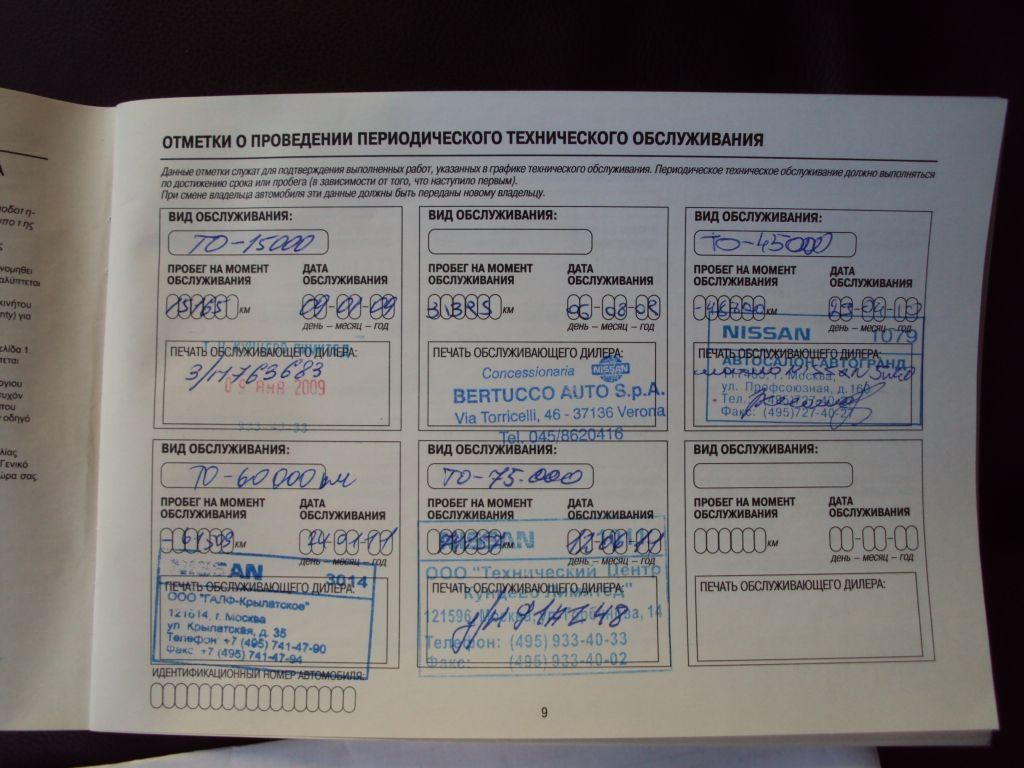 ОТМЕТКИ О ПРОВЕДЕНИИ ПЕРИОДИЧЕСКОГО ТЕХНИЧЕСКОГО ОБСЛУЖИВАНИЯ
Данные отметки служат для подтверждения выполненных работ, указанных в графике технического обслуживания. Периодическое техническое обслуживание должно выполняться
по достижению срока или пробега (в зависимости от того, что наступило первым).
При смене владельца автомобиля эти данные должны быть переданы новому владельцу.
ВИД ОБСЛУЖИВАНИЯ:
ТО-15000
ПРОБЕГ НА МОМЕНТ ОБСЛУЖИВАНИЯ
ДАТА ОБСЛУЖИВАНИЯ
15165 км
09-01-09
день – месяц – год
ПЕЧАТЬ ОБСЛУЖИВАЮЩЕГО ДИЛЕРА:
З/Н763683
09 ЯНВ 2009
933-40-33
ВИД ОБСЛУЖИВАНИЯ:
ПРОБЕГ НА МОМЕНТ ОБСЛУЖИВАНИЯ
ДАТА ОБСЛУЖИВАНИЯ
км
день – месяц – год
ПЕЧАТЬ ОБСЛУЖИВАЮЩЕГО ДИЛЕРА:
Concessionaria NISSAN
BERTUCCO AUTO S.p.A.
Via Torricelli, 46 - 37136 Verona
Tel. 045/8620416
ВИД ОБСЛУЖИВАНИЯ:
ТО-45000
ПРОБЕГ НА МОМЕНТ ОБСЛУЖИВАНИЯ
ДАТА ОБСЛУЖИВАНИЯ
км
день – месяц – год
NISSAN 1079
ПЕЧАТЬ ОБСЛУЖИВАЮЩЕГО ДИЛЕРА:
АВТОСАЛОН АВТОГРАНД
г. Москва,
ул. Профсоюзная, д.
Тел.
Факс: (495)727-40-27
ВИД ОБСЛУЖИВАНИЯ:
ТО-60000км
ПРОБЕГ НА МОМЕНТ ОБСЛУЖИВАНИЯ
ДАТА ОБСЛУЖИВАНИЯ
км
день – месяц – год
NISSAN 3014
ПЕЧАТЬ ОБСЛУЖИВАЮЩЕГО ДИЛЕРА:
ООО "ГАЛФ-Крылатское"
121614, г. Москва
ул. Крылатская, д. 35
Телефон +7 (495) 741-47-90
Факс +7 (495) 741-47-94
ВИД ОБСЛУЖИВАНИЯ:
ТО-75.000
ПРОБЕГ НА МОМЕНТ ОБСЛУЖИВАНИЯ
ДАТА ОБСЛУЖИВАНИЯ
км
день – месяц – год
NISSAN
ООО "Технический Центр
ПЕЧАТЬ ОБСЛУЖИВАЮЩЕГО ДИЛЕРА:
121596, Москва, 14
Телефон: (495) 933-40-33
Факс: (495) 933-40-02
ВИД ОБСЛУЖИВАНИЯ:
ПРОБЕГ НА МОМЕНТ ОБСЛУЖИВАНИЯ
ДАТА ОБСЛУЖИВАНИЯ
км
день – месяц – год
ПЕЧАТЬ ОБСЛУЖИВАЮЩЕГО ДИЛЕРА:
ИДЕНТИФИКАЦИОННЫЙ НОМЕР АВТОМОБИЛЯ:
9